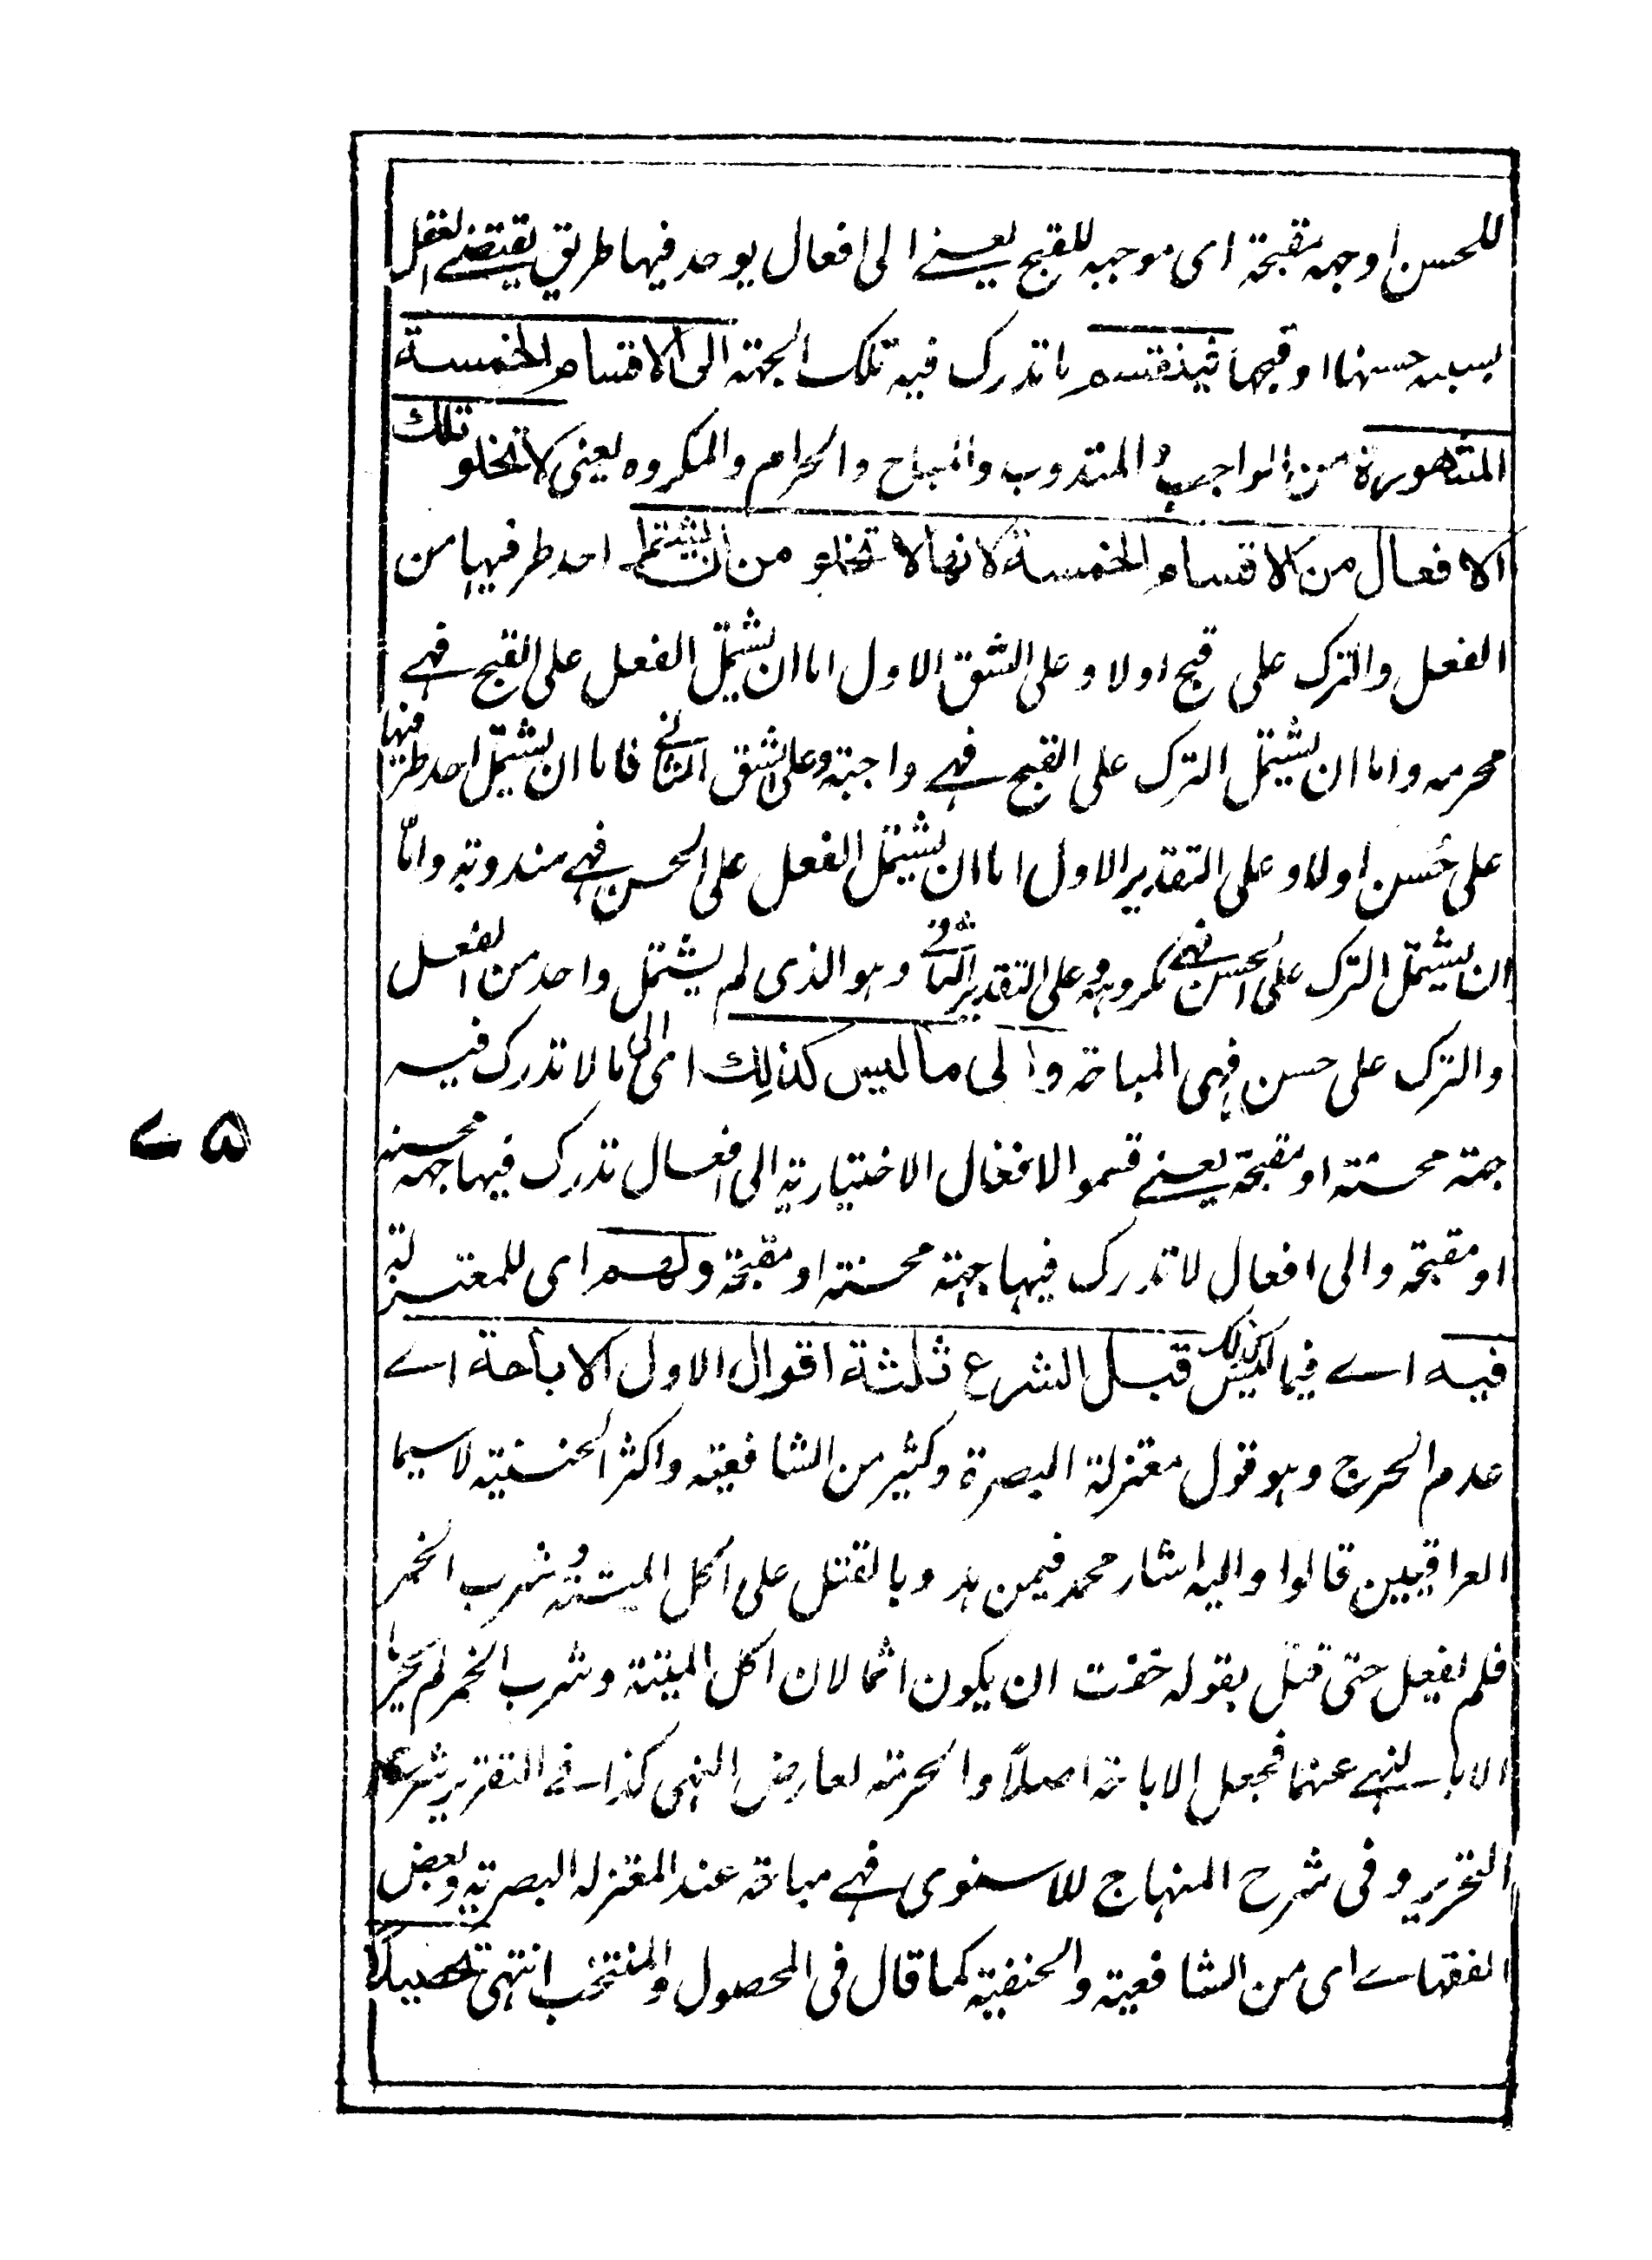 للحسن او جهه مقبحة اى موجبه للقبح يعنے الى افعال يوجد فيها طريق يقتضے العقل
بسببه حسنها او قبحها فينقسم ما تدرك فيه تلك الجهته الى الاقسام الخمسة
المشهورة من الواجب و المندوب والمباح والحرام والمكروه يعنى لا تخلو تلك
الافعال من الاقسام الخمسة لانها لا تخلو من ان يشتمل احد طرفيها من
الفعل والترك على قبح اولا و على الشق الاول اما ان يشتمل الفعل على القبح فهے
محرمه واما ان يشتمل الترك على القبح فهے واجبة وعلى الشق الثانے فاما ان يشتمل احد طرفيها
على حُسن اولا و على التقدير الاول اما ان يشتمل الفعل على الحسن فهے مندوبة وامّا
ان يشتمل الترك على الحسن فهے مكروهة و على التقدير الثانے وهو الذى لم يشتمل واحد من الفعل
والترك على حسن فهى المباحة و الى ما ليس كذلك اى الى ما لا تدرك فيه
جهة محسنة او مقبحة يعنے قسموا الافعال الاختيارية الى افعال تدرك فيها جهة محسنه
او مقبحة والى افعال لا تدرك فيها جهة محسنة او مقبحة ولهم اى للمعتزلة
فيه اے فيما ليس كذلك قبل الشرع ثلثة اقوال الاول الاباحة اے
عدم الحرج وهو قول معتزلة البصرة وكثير من الشافعية واكثر الحنفية لا سيما
العراقيين قالوا واليه اشار محمد فيمن هدد بالقتل على اكل الميتة و شرب الخمر
فلم يفعل حتى قتل بقوله خفت ان يكون اثما لان اكل الميتة وشرب الخمر لم يحرما
الا بالنهے عنهما فجعل الاباحة اصلاً والحرمة لعارض النهى كذا فے التقرير شرح
التحرير و فى شرح المنهاج للاسنوى فهے مباحة عند المعتزله البصرية وبعض
الفقهاے اى من الشافعية والحنفية كما قال فى المحصول والمنتخب انتهى تحصيلا
۷۵